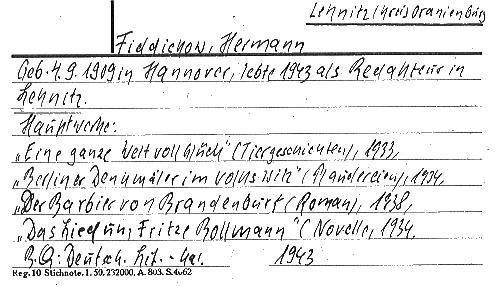 Lehnitz (Kreis Oranienburg
Fiddichow, Hermann
Geb. 4.9.1909 in Hannover, lebte 1943 als Redakteur in
Lehnitz.
Hauptwerke:
„Eine ganze Welt voll Glück" (Tiergeschichten), 1933,
„Berliner Denkmäler im Volkswitz" (Plaudereien), 1934,
„Der Barbier von Brandenburg (Roman), 1938,
„Das Lied um Fritze Bollmann" (Novelle, 1934.
B.Q: Deutsch. Lit.-Kal. 1943
Reg. 10 Stichnote. 1. 50. 232000. A. 803. S. 4062